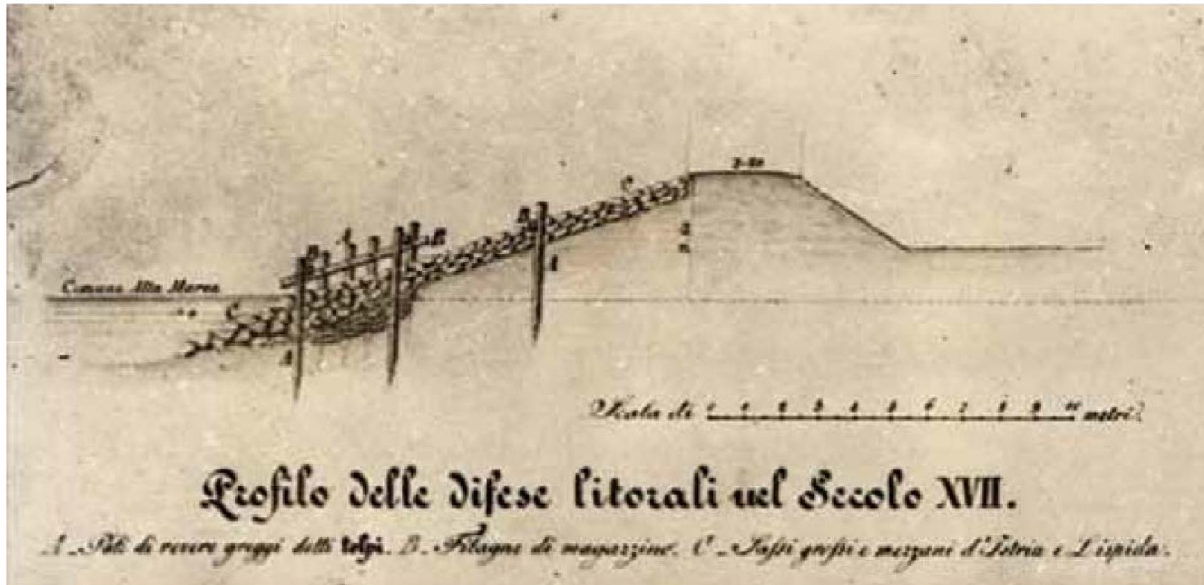 C
3-00
B
C
A
B
B
A
Comune Alta Marea
C
A
Scala di 1 2 3 4 5 6 7 8 9 10 metri
Profilo delle difese litorali nel Secolo XVII.
A_Pali di rovere greggi detti tolpi. B_Filagne di magazzino. C_Sassi grossi e mezzani d'Istria e Lispida.